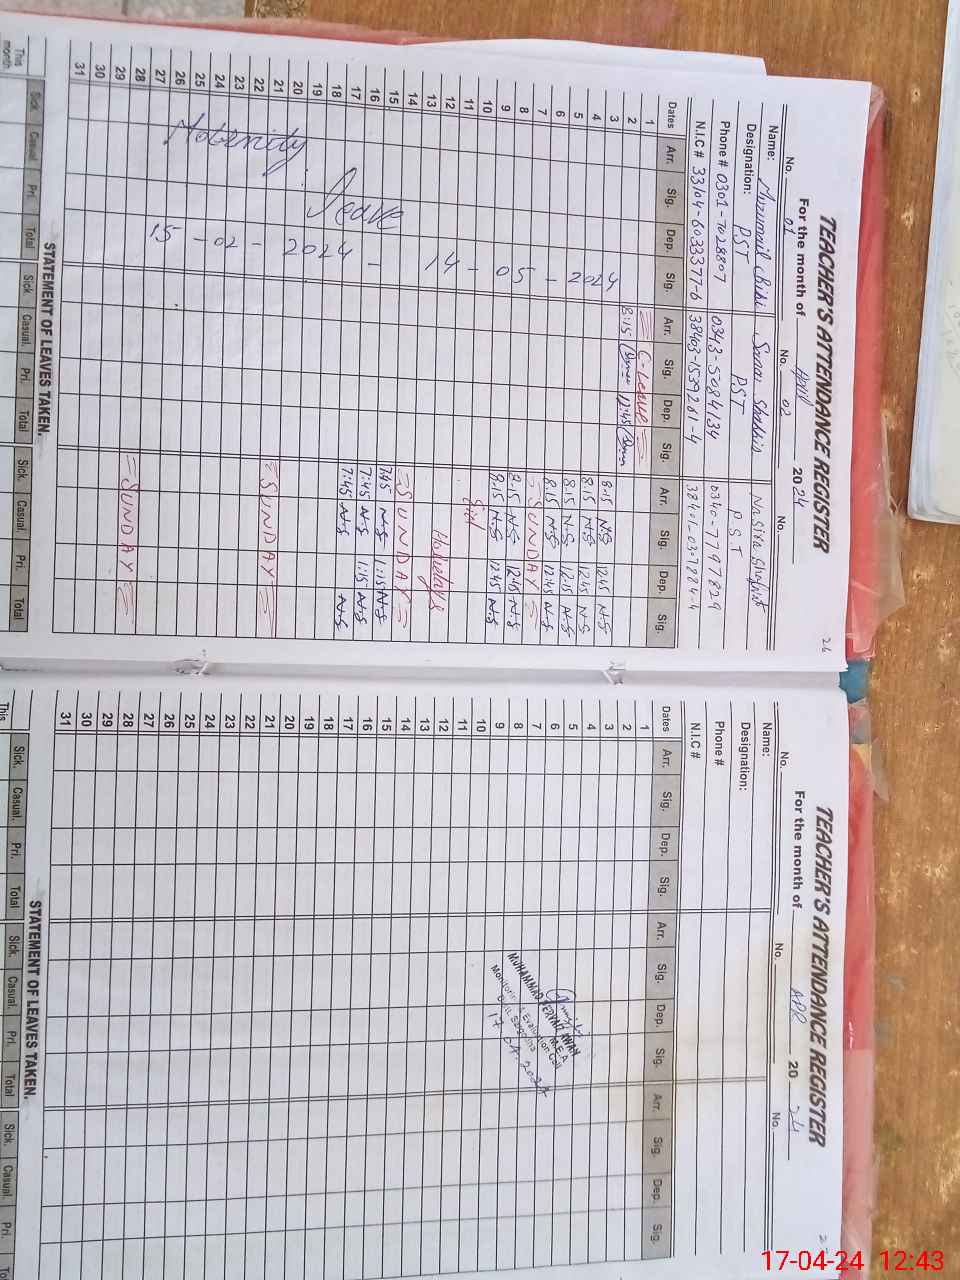 TEACHER'S ATTENDANCE REGISTER
For the month of April 2024
26
No. 01 No. 02 No.
Name: Muzumail Bibi Sanar Shabbir Nasira Shafqat
Designation: PST PST PST
Phone # 0301-7028807 0343-5084134 0340-7797829
N.I.C # 33104-6033377-6 38403-1539261-4
Dates Arr. Sig. Dep. Sig. Arr. Sig. Dep. Sig. Arr. Sig. Dep. Sig.
1 C-Leave
2 8:15 12:45
3 8:15 N.S 12:45 N.S
4 8:15 N.S 12:45 N.S
5 8:15 N.S 12:15 N.S
6 8:15 N.S 12:45 N.S
7 SUNDAY
8 8:15 N.S 12:45 N.S
9 8:15 N.S 12:45 N.S
10
11 Eid
12
13 Holidays
14 SUNDAY
15 7:45 N.S 1:15 N.S
16 7:45 N.S 1:15 N.S
17 7:45 N.S N.S
18
19
20
21 SUNDAY
22
23
24
25
26
27
28 SUNDAY
29
30
31
Maternity Leave
15-02-2024 - 14-05-2024
STATEMENT OF LEAVES TAKEN.
This month Sick Casual Pri. Total Sick Casual. Pri. Total Sick. Casual. Pri. Total
TEACHER'S ATTENDANCE REGISTER
For the month of APR 2024
No. No. No.
Name:
Designation:
Phone #
N.I.C #
Dates Arr. Sig. Dep. Sig. Arr. Sig. Dep. Sig. Arr. Sig. Dep. Sig.
1
2
3
4
5
6
7
8
9
10
11
12
13
14
15
16
17
18
19
20
21
22
23
24
25
26
27
28
29
30
31
MUHAMMAD PERVAIZ AWAN
M.E.A
Monitoring & Evaluation Cell
Distt. Sargodha
17.04.2024
STATEMENT OF LEAVES TAKEN.
This Sick. Casual. Pri. Total Sick. Casual. Pri. Total Sick. Casual. Pri.
17-04-24 12:43